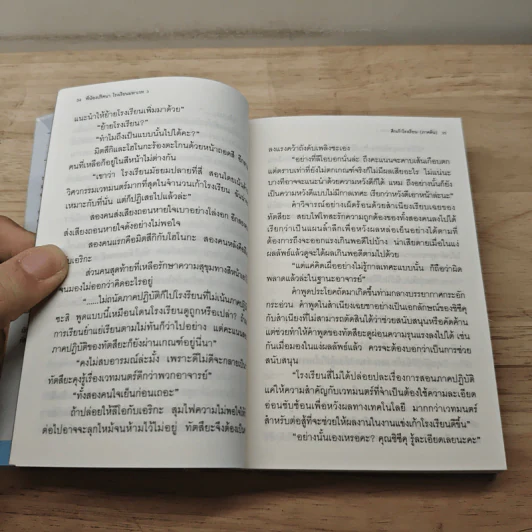 แนะนำให้ย้ายโรงเรียนเพิ่มมาด้วย"
"ย้ายโรงเรียน?"
"ทำไมถึงเป็นแบบนั้นไปได้คะ?"
มิตสึกิและโฮโนกะร้องตะโกนด้วยหน้าถอดสี
คนที่เหลือก็อยู่ในสีหน้าไม่ต่างกัน
"เขาว่า โรงเรียนมัธยมปลายที่สี่ สอนโดยเน้น
วิศวกรรมเวทมนตร์มากที่สุดในจำนวนเก้าโรงเรียน
เหมาะกับที่นั่น แต่ก็ปฏิเสธไปแล้วล่ะ"
สองคนส่งเสียงถอนหายใจเบาอย่างโล่งอก อีกสอง
ส่งเสียงถอนหายใจดังอย่างไม่พอใจ
สองคนแรกคือมิตสึกิกับโฮโนกะ สองคนหลังคือ
กับเอริกะ
ส่วนคนสุดท้ายที่เหลือรักษาความสุขุมทางสีหน้า
จนมองไม่ออกว่าคิดอะไรอยู่
"......ไม่ถนัดภาคปฏิบัติก็ไปโรงเรียนที่ไม่เน้นภาค
ซะสิ พูดแบบนี้เหมือนโดนโรงเรียนดูถูกหรือเปล่า
การเรียนย้ายเรียนตามไม่ทันก็ว่าไปอย่าง แต่คะแนน
ภาคปฏิบัติของทัตสึยะก็ยังผ่านเกณฑ์อยู่นี่นา"
"คงไม่สบอารมณ์ล่ะมั้ง เพราะดีไม่ดีจะกลายเป็น
ทัตสึยะคุงรู้เรื่องเวทมนตร์ดีกว่าพวกอาจารย์"
"ทั้งสองคนใจเย็นก่อนเถอะ"
ถ้าปล่อยให้ลีโอกับเอริกะ สุมไฟความไม่พอใจ
ต่อไปอาจจะลุกไหม้จนห้ามไว้ไม่อยู่ ทัตสึยะจึงต้อง
ลงแรงคว้าถังดับเพลิงซะเอง
"อย่างที่ลีโอบอกนั่นล่ะ ถึงคะแนนจะคาบเส้นเกือบตก
แต่ตราบเท่าที่ยังไม่ตกเกณฑ์จริงก็ไม่มีผลเสียอะไร ไม่แน่นะ
บางทีอาจจะแนะนำด้วยความหวังดีก็ได้ แหม ถึงอย่างนั้นก็ยัง
เป็นความหวังดีแบบไม่ดูกาลเทศะ เรียกว่าหวังดีเอาหน้าล่ะนะ"
คำวิจารณ์อย่างเผ็ดร้อนด้วยสำเนียงเรียบเฉยของ
ทัตสึยะ สยบไฟโทสะรักความถูกต้องของทั้งสองคนลงไปได้
ต้องการถึงจะออกแรงเกินพอดีไปบ้าง น่าเสียดายเมื่อในแง่
ผลลัพธ์แล้วดูจะได้ผลเกินพอดีตามไปด้วย
"แค่แค่คิดเผื่ออย่างไม่รู้กาลเทศะแบบนั้น ก็ถือว่าผิด
พลาดแล้วในฐานะอาจารย์"
คำพูดประโยคถัดมาเกิดขึ้นท่ามกลางบรรยากาศกระอัก
กระอ่วน คำพูดในสำเนียงเฉยชาอย่างเป็นเอกลักษณ์ของชิซึคุ
กับสำเนียงที่ไม่สามารถตัดสินได้ว่าช่วยสนับสนุนหรือคัดค้าน
แต่ช่วยทำให้คำพูดของทัตสึยะดูผ่อนความรุนแรงลงไปได้ เช่น
กันเมื่อมองในแง่ผลลัพธ์แล้ว ควรจะต้องบอกว่าเป็นการช่วย
สนับสนุน
"โรงเรียนสี่ไม่ได้ปล่อยปละเรื่องการสอนภาคปฏิบัติ
แค่ให้ความสำคัญกับเวทมนตร์ที่จำเป็นต้องใช้ความละเอียด
อ่อนซับซ้อนเพื่อหวังผลทางเทคโนโลยี มากกว่าเวทมนตร์
สำหรับต่อสู้ที่จะช่วยให้ผลงานในงานแข่งเก้าโรงเรียนดีขึ้น"
"อย่างนั้นเองเหรอคะ? คุณชิซึคุ รู้ละเอียดเลยนะคะ"